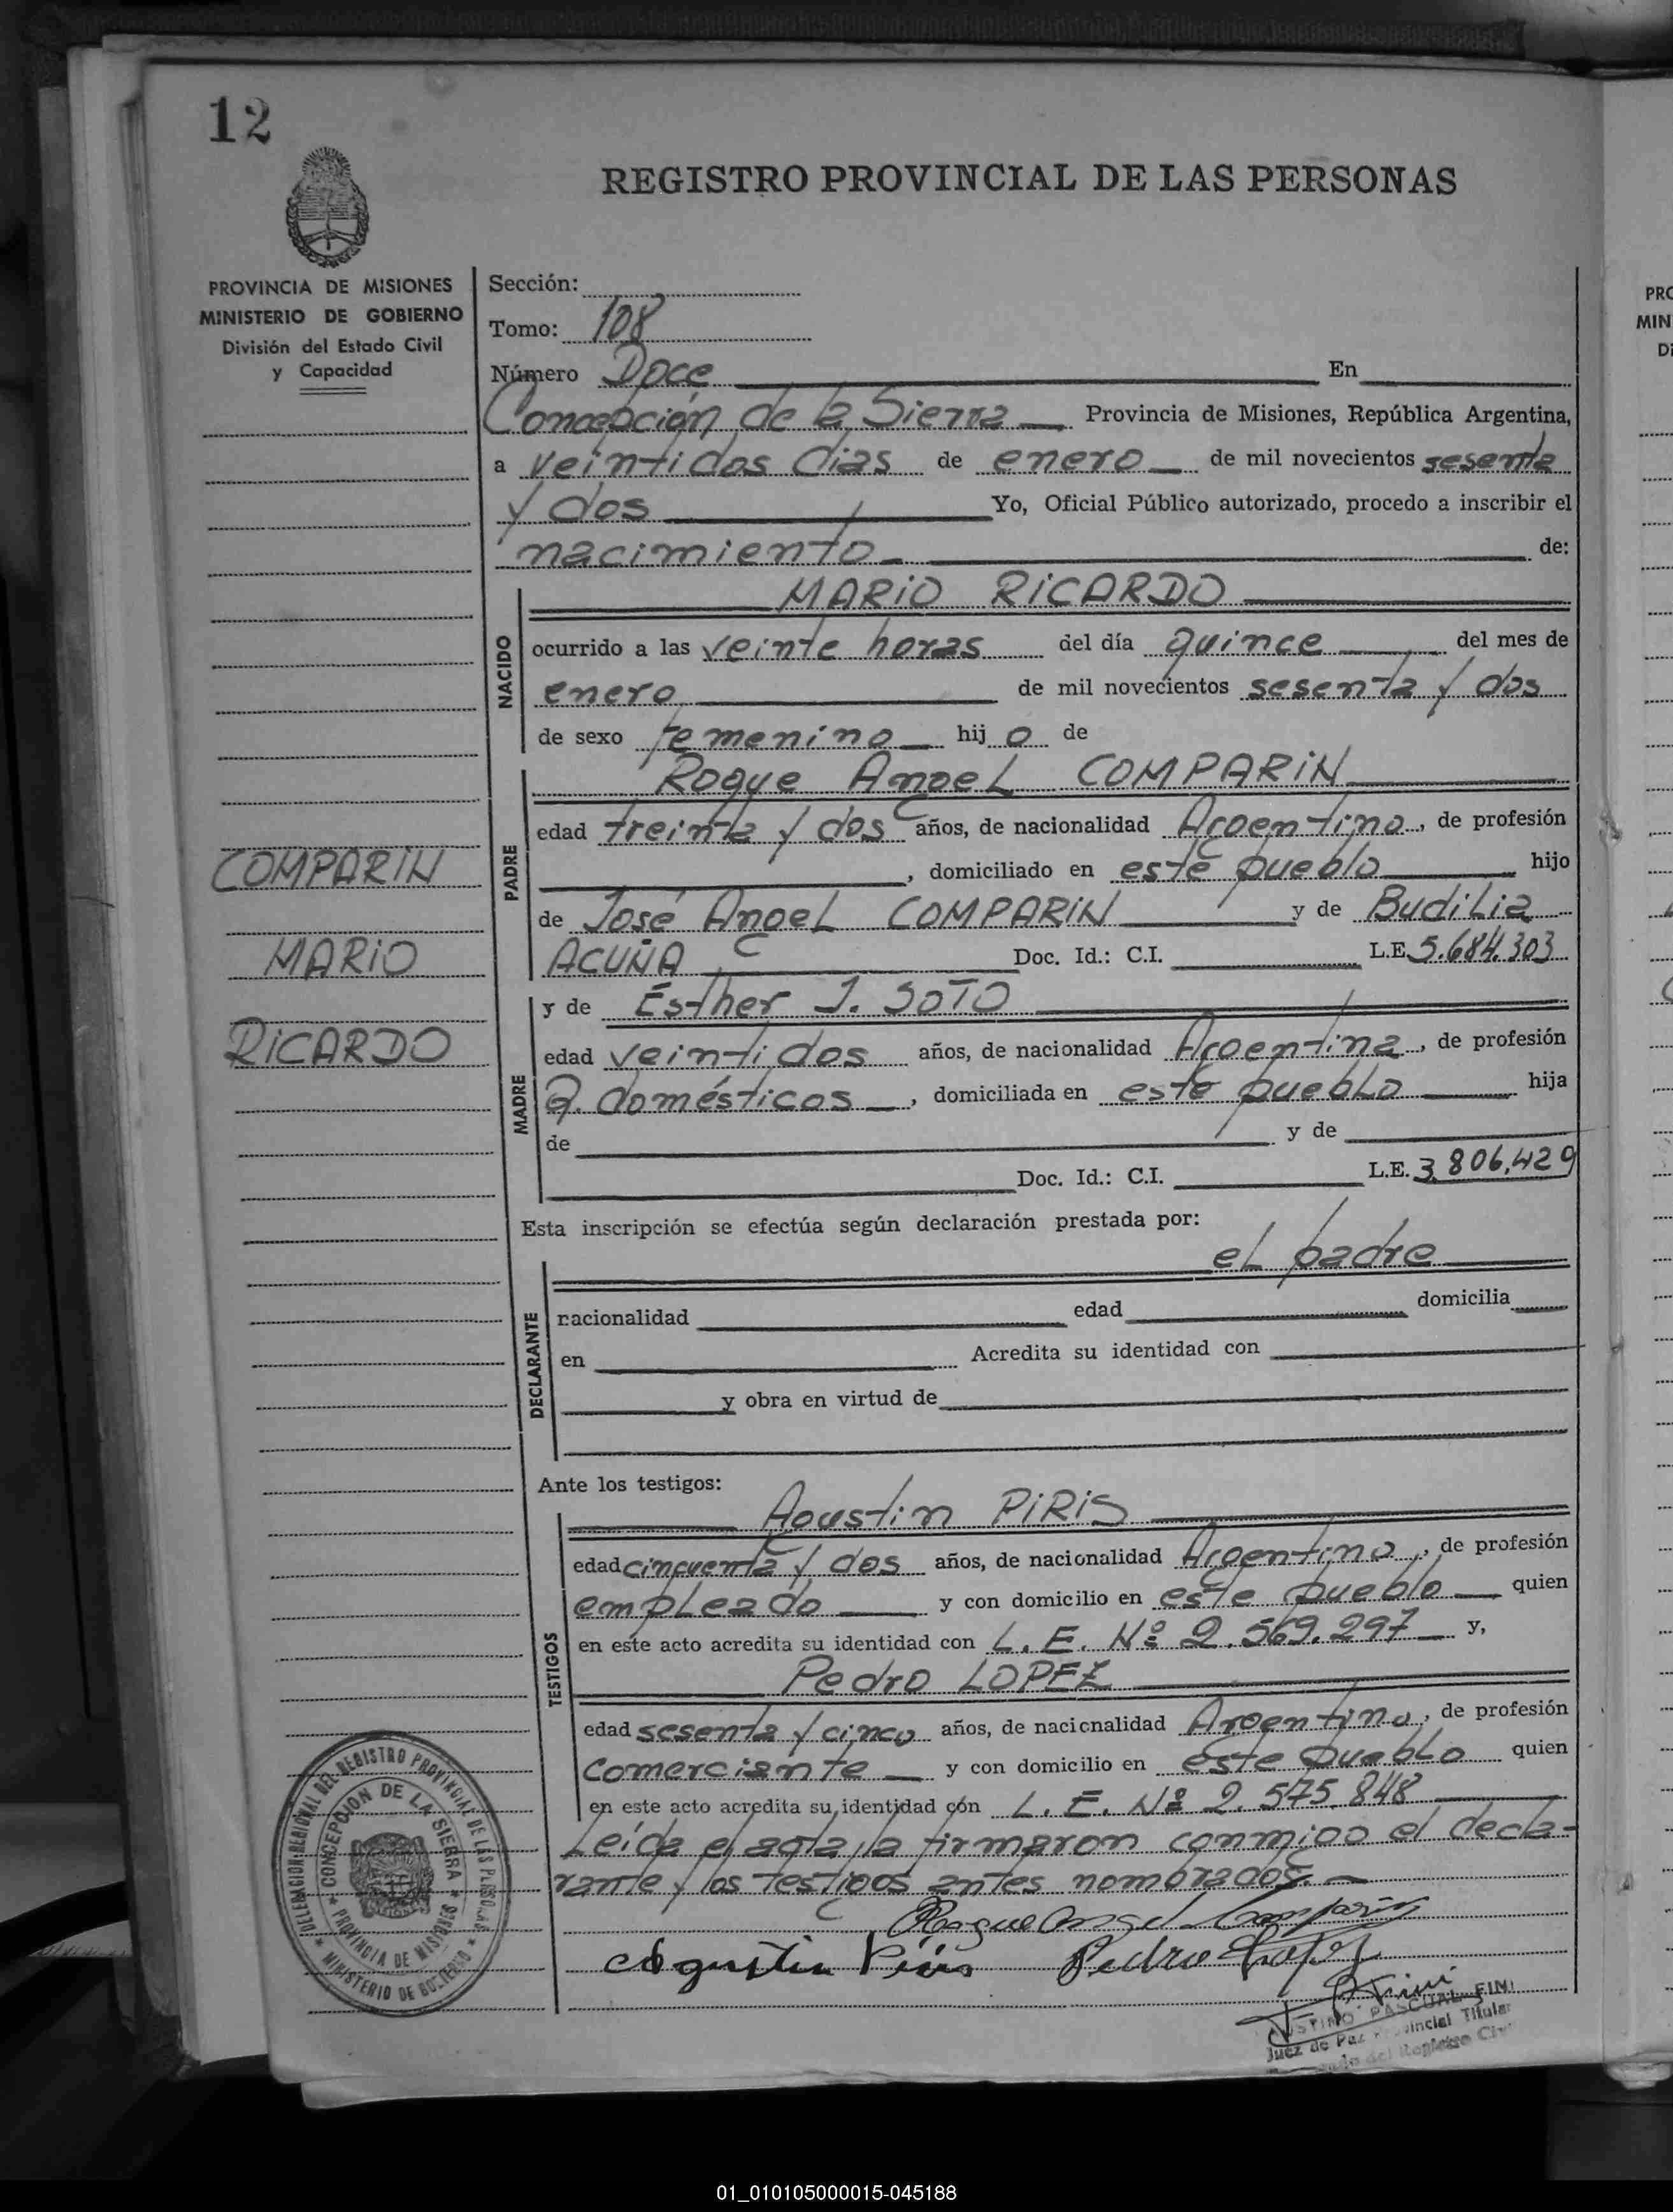 12
REGISTRO PROVINCIAL DE LAS PERSONAS
PROVINCIA DE MISIONES
MINISTERIO DE GOBIERNO
División del Estado Civil
y Capacidad
Sección:
Tomo: 108
Número Doce En
Concepción de la Sierra Provincia de Misiones, República Argentina,
a veintidos dias de enero de mil novecientos sesenta
y dos Yo, Oficial Público autorizado, procedo a inscribir el
nacimiento de:
NACIDO
MARiO RiCARDO
ocurrido a las veinte horas del día quince del mes de
enero de mil novecientos sesenta y dos
de sexo femenino hijo de
PADRE
Roque Angel COMPARiN
edad treinta y dos años, de nacionalidad Argentino, de profesión
, domiciliado en este pueblo hijo
de José Angel COMPARiN y de Budilia
ACUÑA Doc. Id.: C.I. L.E. 5.684.303
COMPARiN
MARiO
RiCARDO
MADRE
y de Esther J. SOTO
edad veintidos años, de nacionalidad Argentina, de profesión
Q. domésticos, domiciliada en este pueblo hija
de y de
Doc. Id.: C.I. L.E. 3.806.429
Esta inscripción se efectúa según declaración prestada por:
el padre
DECLARANTE
nacionalidad edad domicilia
en Acredita su identidad con
y obra en virtud de
Ante los testigos:
TESTIGOS
Agustin PiRiS
edad cincuenta y dos años, de nacionalidad Argentino, de profesión
empleado y con domicilio en este pueblo quien
en este acto acredita su identidad con L. E. Nº 2.569.297 y,
Pedro LOPEZ
edad sesenta y cinco años, de nacionalidad Argentino, de profesión
comerciante y con domicilio en este pueblo quien
en este acto acredita su identidad con L. E. Nº 2.575.848
Leída el acta, la firmaron conmigo el decla-
rante y los testigos antes nombrados.
Roque Angel Comparin
Agustin Piris Pedro Lopez
PASCUAL FINI
Juez de Paz Provincial Titular
del Registro Civil
DELEGACION REGIONAL DEL REGISTRO PROVINCIAL DE LAS PERSONAS
CONCEPCION DE LA SIERRA
PROVINCIA DE MISIONES
MINISTERIO DE GOBIERNO
PRO
MIN
Di
01_010105000015-045188